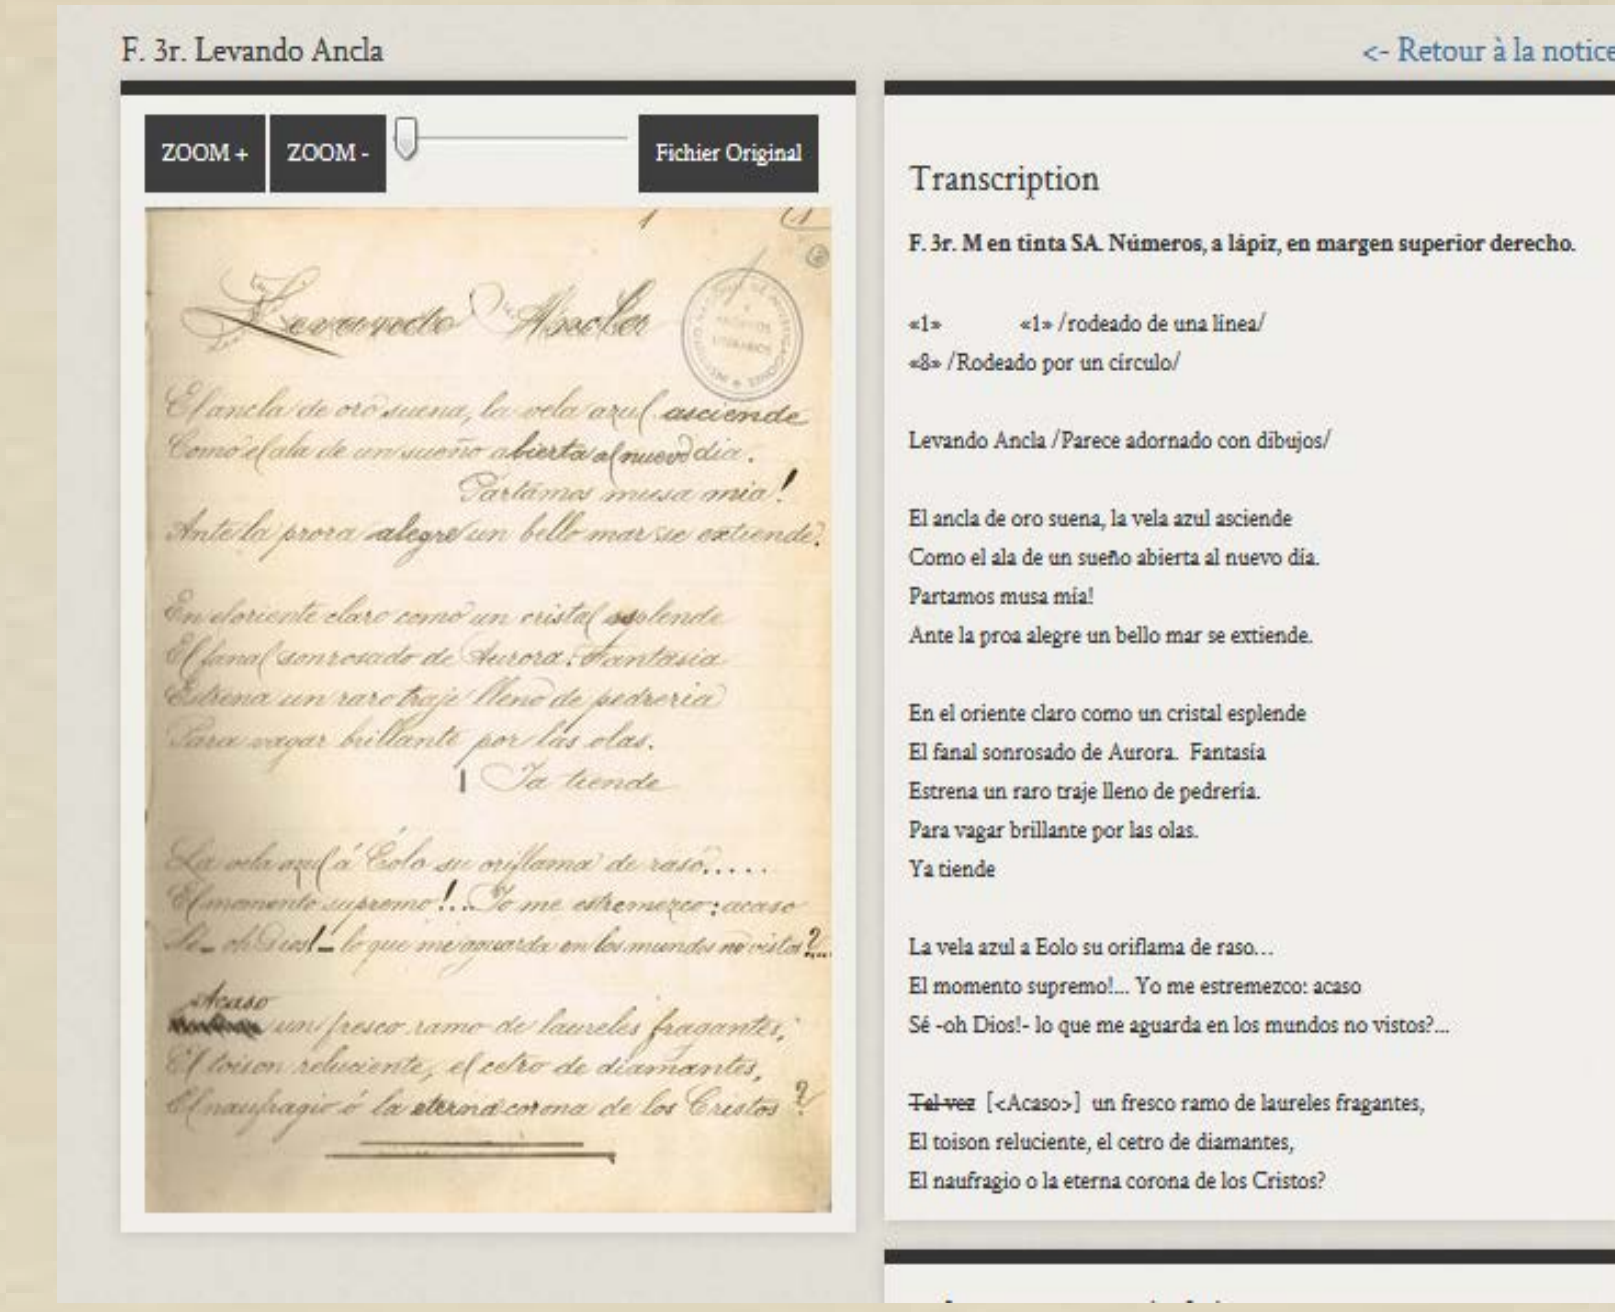 F. 3r. Levando Ancla
<- Retour à la notice
ZOOM +
ZOOM -
Fichier Original
1
Levando Ancla
El ancla de oro suena, la vela azul asciende
Como el ala de un sueño abierta al nuevo dia.
Partamos musa mia!
Ante la prora alegre un bello mar se extiende.
En el oriente claro como un cristal esplende
El fanal sonrosado de Aurora. Fantasia
Estrena un raro traje lleno de pedreria
Para vagar brillante por las olas.
Ya tiende
La vela azul á Éolo su oriflama de raso.....
El momento supremo!... Yo me estremezco: acaso
Sé _ oh Dios!_ lo que me aguarda en los mundos no vistos?...
Acaso
un fresco ramo de laureles fragantes,
El toison reluciente, el cetro de diamantes,
El naufragio ó la eterna corona de los Cristos?
Transcription
F. 3r. M en tinta SA. Números, a lápiz, en margen superior derecho.
«1» «1» /rodeado de una línea/
«8» /Rodeado por un círculo/
Levando Ancla /Parece adornado con dibujos/
El ancla de oro suena, la vela azul asciende
Como el ala de un sueño abierta al nuevo día.
Partamos musa mía!
Ante la proa alegre un bello mar se extiende.
En el oriente claro como un cristal esplende
El fanal sonrosado de Aurora. Fantasía
Estrena un raro traje lleno de pedrería.
Para vagar brillante por las olas.
Ya tiende
La vela azul a Eolo su oriflama de raso...
El momento supremo!... Yo me estremezco: acaso
Sé -oh Dios!- lo que me aguarda en los mundos no vistos?...
Tal vez [<Acaso>] un fresco ramo de laureles fragantes,
El toison reluciente, el cetro de diamantes,
El naufragio o la eterna corona de los Cristos?